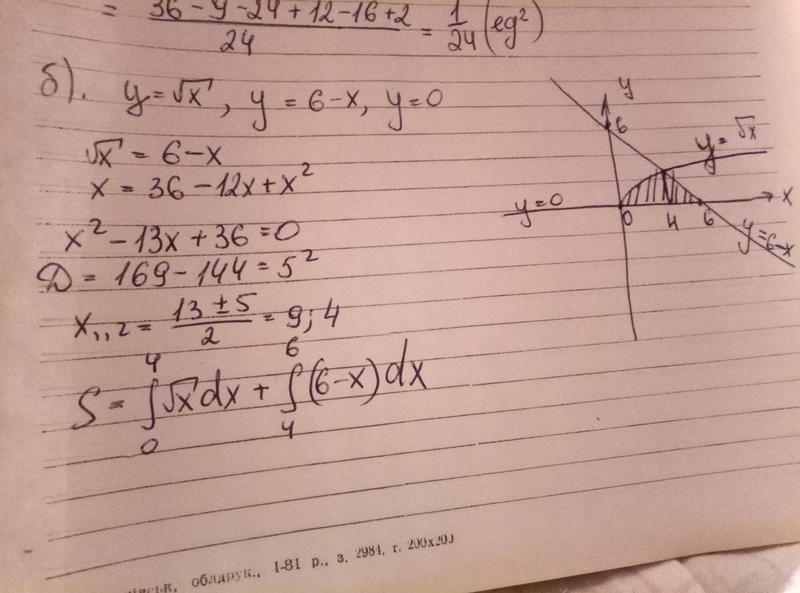 = (36 - 9 - 24 + 12 - 16 + 2)/24 = 1/24 (eg²)
б). y = √x, y = 6-x, y=0
√x = 6-x
x = 36 - 12x + x²
x² - 13x + 36 = 0
D = 169 - 144 = 5²
x₁,₂ = (13 ± 5)/2 = 9; 4
S = ∫₀⁴ √x dx + ∫₄⁶ (6-x) dx
y
6
y = √x
y=0
0 4 6 x
y=6-x
обладрук., 1-81 р., з. 2984, г. 200x200